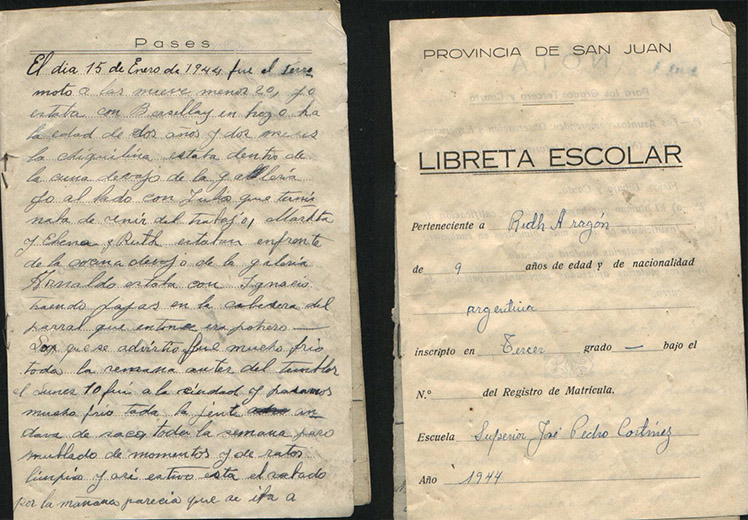 Pases
El dia 15 de Enero de 1944 fue el terre
moto a las nueve menos 20, yo
estaba con Berselley en
la edad de dos años y dos meses
la chiquilina estaba dentro de
la cuna devajo de la gallera
yo al lado con Julio que termi
nata de venir del trabajo, Martita
y Elena y Ruth estaban enfrente
de la cocina devajo de la galeria
Arnaldo estaba con Ignacio
traendo pajas en la cabesera del
parral que entonce era potrero —
que se advirtio fue mucho frio
toda la semana antes del temblor
el lunes 10 fui a la ciudad y pasamos
mucho frio toda la jente an
dava de saco, toda la semana paso
nublado de momentos y de ratos
limpio y asi estivo esta el sabado
por la mañana parecia que se iba a
PROVINCIA DE SAN JUAN
LIBRETA ESCOLAR
Perteneciente a Ruth Aragón
de 9 años de edad y de nacionalidad
argentina
inscripto en Tercer grado — bajo el
N.º del Registro de Matrícula.
Escuela Superior José Pedro Cortínez
Año 1944